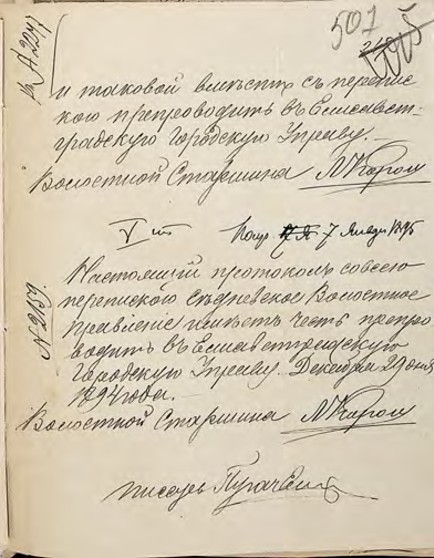 № А.2247
501
и таковой вместѣ съ перепис
кою препроводить въ Елисавет-
градскую Городскую Управу.-
Волостной Старшина
V ст
7 Января 1895
№ 2159.
Настоящій протоколъ со всею
перепискою Волостное
Правленіе имѣетъ честь препро
водить въ Елисаветградскую
Городскую Управу. Декабря 29 дня
1894 года.-
Волостной Старшина
писарь